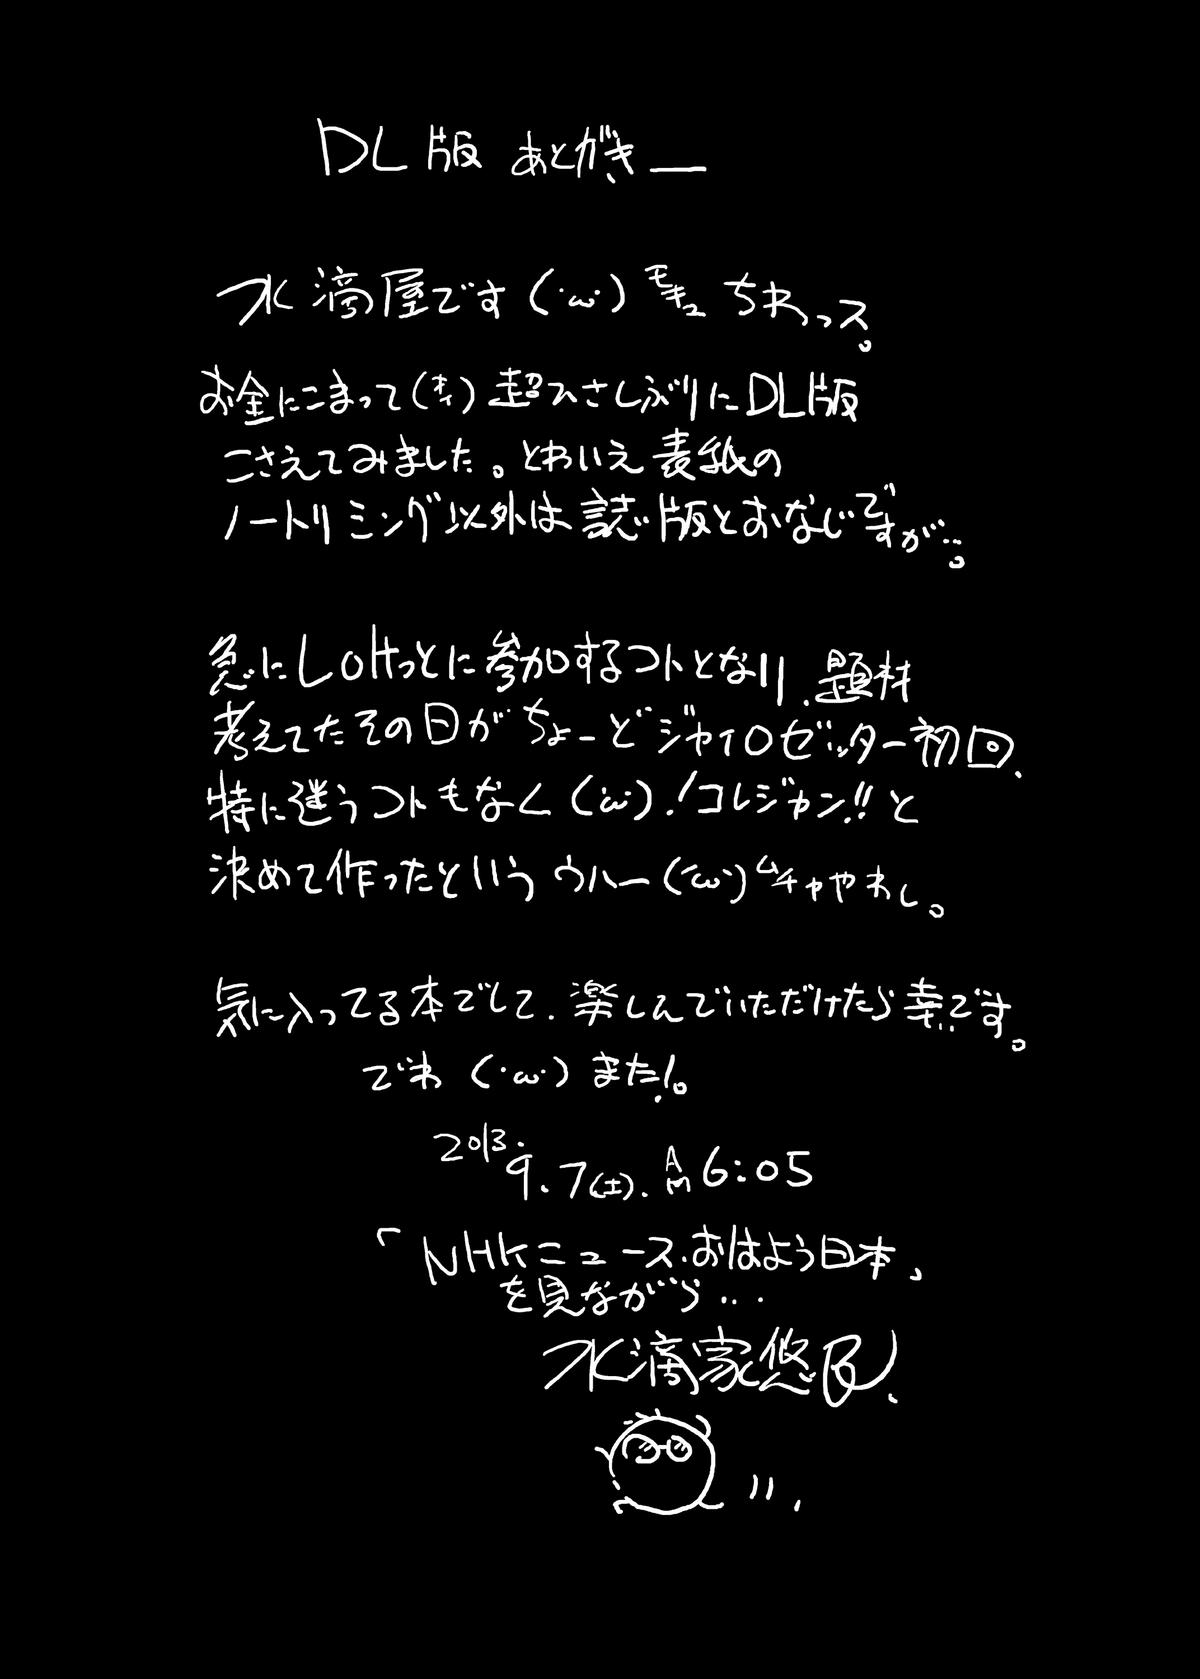 DL版 あとがき―
水滴屋です(・ω・)モキュ ちわっス。
お金にこまって(オイ)超ひさしぶりにDL版
こさえてみました。とわいえ表紙の
ノートリミング以外は誌版とおなじですが…。
急にしoHっとに参加するコトとなり、題材
考えてたその日がちょーどジャイロゼッター初回、
特に迷うコトもなく(・ω・)!コレジャン!!と
決めて作ったという ウハー(´ω`)ムチャやわし。
気に入ってる本でして、楽しんでいただけたら幸いです。
でわ(・ω・)また!。
2013.9.7(土). AM6:05
「NHKニュース.おはよう日本」
を見ながら…
水滴家悠